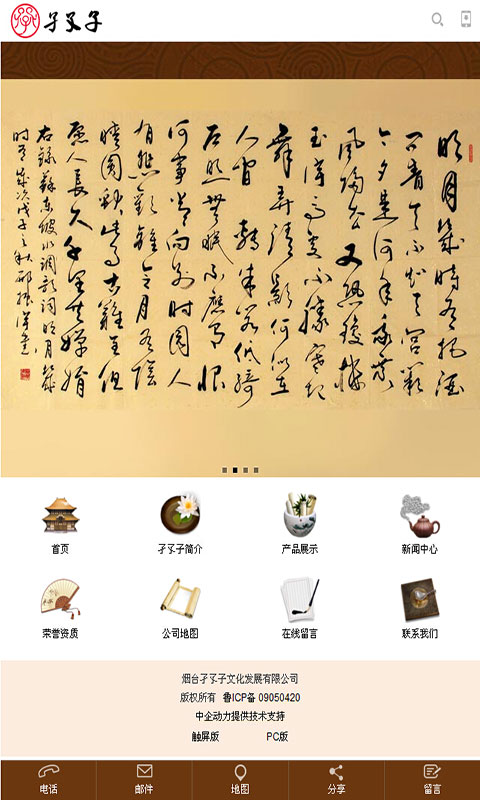 孑孓子
明月几时有把酒
问青天不知天上宫阙
今夕是何年我欲乘
风归去又恐琼楼
玉宇高处不胜寒起
舞弄清影何似在
人间转朱阁低绮
户照无眠不应有恨
何事长向别时圆人
有悲欢离合月有阴
晴圆缺此事古难全但
愿人长久千里共婵娟
右录苏东坡水调歌词明月几
时有岁次戊子之秋
首页
孑孓子简介
产品展示
新闻中心
荣誉资质
公司地图
在线留言
联系我们
烟台孑孓子文化发展有限公司
版权所有 鲁ICP备 09050420
中企动力提供技术支持
触屏版 PC版
电话
邮件
地图
分享
留言